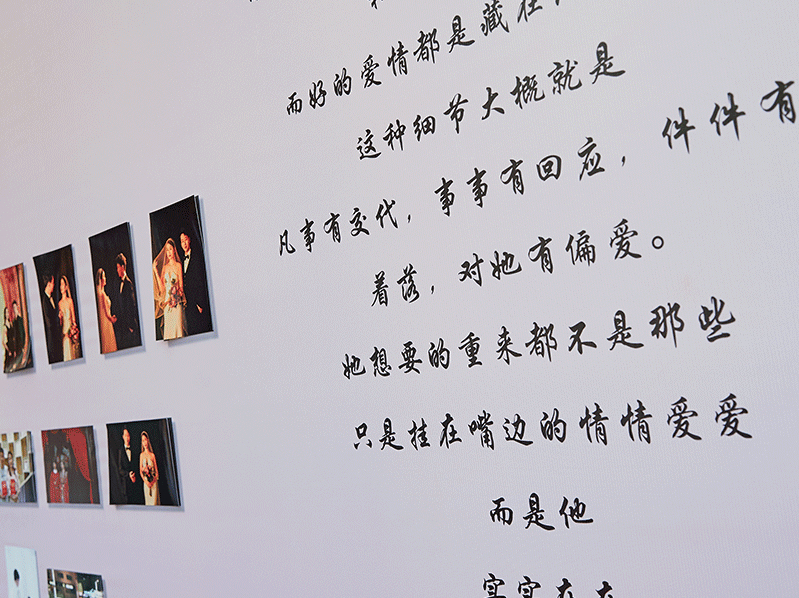 而好的爱情都是藏在
这种细节大概就是
凡事有交代，事事有回应，件件有
着落，对她有偏爱。
她想要的重来都不是那些
只是挂在嘴边的情情爱爱
而是他
实实在在